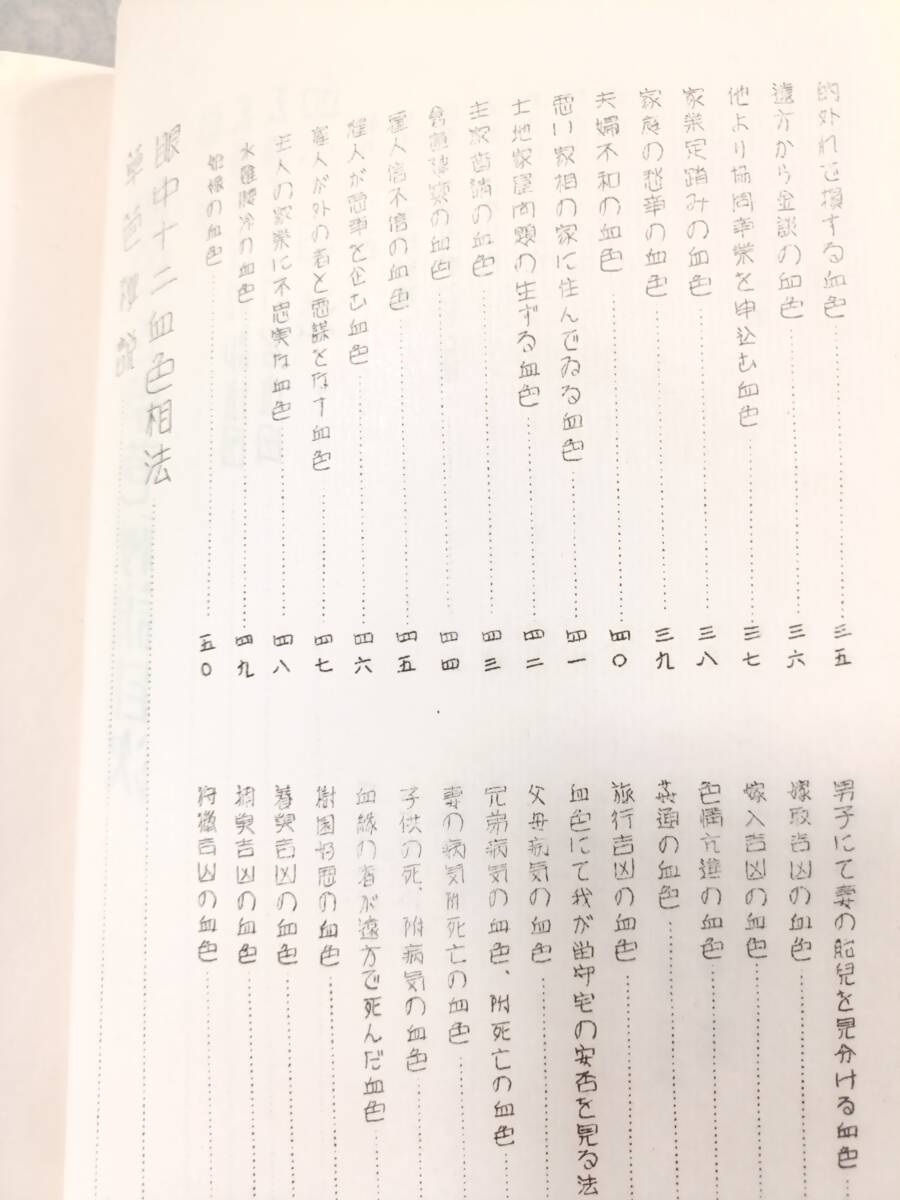 的外れで損する血色……三五
遠方から金談の血色……三六
他より協同事業を申込む血色……三七
家業足踏みの血色……三八
家庭の愁事の血色……三九
夫婦不和の血色……四〇
悪い家相の家に住んでゐる血色……四一
土地家屋問題の生ずる血色……四二
主家普請の血色……四三
倉庫建築の血色……四四
雇人信不信の血色……四五
雇人が悪事を企む血色……四六
雇人が外の者と悪謀をなす血色……四七
主人の家業に不忠実な血色……四八
水難腰冷の血色……四九
妊娠の血色……五〇
眼中十二血色相法
男子にて妻の胎兒を見分ける血色
嫁取吉凶の血色
嫁入吉凶の血色
色情亢進の血色
姦通の血色
旅行吉凶の血色
血色にて我が留守宅の安否を見る法
父母病気の血色
兄弟病気の血色、附死亡の血色
妻の病気附死亡の血色
子供の死、附病気の血色
血縁の者が遠方で死んだ血色
樹園好悪の血色
養巣吉凶の血色
吉凶の血色
狩猟吉凶の血色